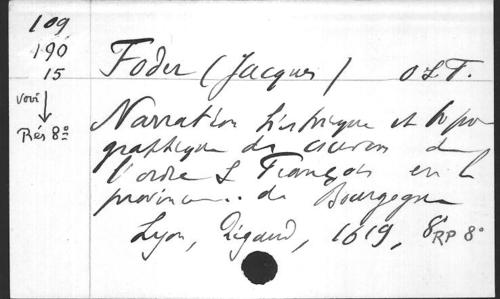 109
190
15
Voir
Rés 8°
Foder (Jacques) O S F.
Narration historique et topo
graphique des couvens de
l'ordre S François en la
province .. de Bourgogne
Lyon, Rigaud, 1619, 8°
RP 8°